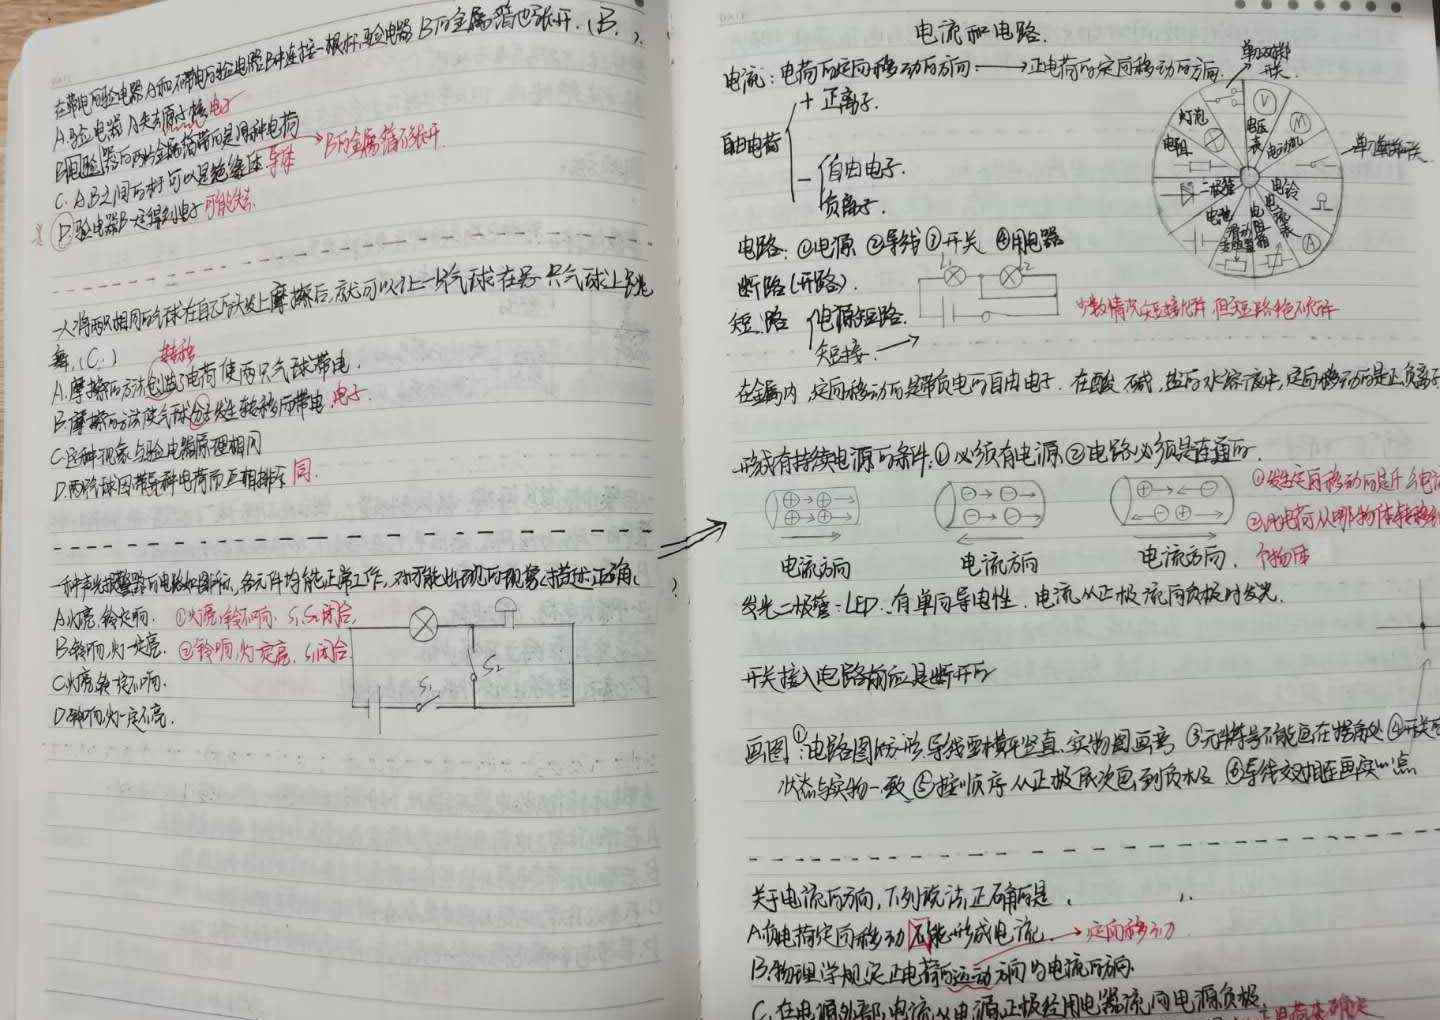 在带电的验电器A和不带电的验电器B中连接一根杆,验电器B的金属箔也张开.(B.)
A.验电器A失去原子核电子
B.用验器的两片金属箔带的是同种电荷
C.A,B之间的杆可以是绝缘体 导体 → B的金属箔不张开
D.验电器B一定得到电子 可能失去.
一人将两只相同的气球在自己的头发上摩擦后,就可以让一只气球在另一只气球上跳
舞.(C.)
转移
A.摩擦的方法创造了电荷使两只气球带电.
B.摩擦的方法使气球分子发生转移而带电.电子.
C.这种现象与验电器原理相同
D.两气球因带异种电荷而互相排斥 同.
一种声光报警器的电路如图所示,各元件均能正常工作,对可能出现的现象,描述正确( )
A.灯亮,铃一定响. ①灯亮,铃不响. S₁,S₂闭合.
B.铃响,灯一定亮. ②铃响,灯一定亮. S₁闭合
C.灯亮,铃一定不响.
D.铃响,灯一定不亮.
S₂
S₁
电流和电路.
电流:电荷的定向移动的方向 → 正电荷的定向移动的方向.
单刀双掷
开关.
+ 正离子.
自由电荷
- 自由电子.
负离子.
灯泡
电压表
V
M
电动机
单刀单掷开关
电阻
二极管
电铃
电池
滑动变阻器
电阻箱
电流表
A
电路:①电源 ②导线 ③开关 ④用电器
断路(开路).
L₁
L₂
短路 电源短路.
短接. →
少数情况短接允许,但短路绝不允许
在金属内,定向移动的是带负电的自由电子.在酸,碱,盐的水溶液中,定向移动的是正负离子
形成有持续电源的条件:①必须有电源 ②电路必须是连通的.
①发生定向移动的是什么电
电流方向 电流方向 电流方向.
个物体
发光二极管:LED:有单向导电性.电流从正极流向负极时发光.
开关接入电路前应是断开的
画图:①电路图的方形,导线要横平竖直.实物图画弯 ③元件符号不能画在拐角处 ④开关
状态与实物一致 ⑤按顺序从正极依次画到负极 ⑥导线交叉相连画实心点
关于电流的方向,下列说法正确的是.
A.负电荷定向移动不能形成电流. → 定向移动
B.物理学规定正电荷的运动方向为电流的方向.
C.在电源外部,电流从电源正极经用电器流向电源负极.